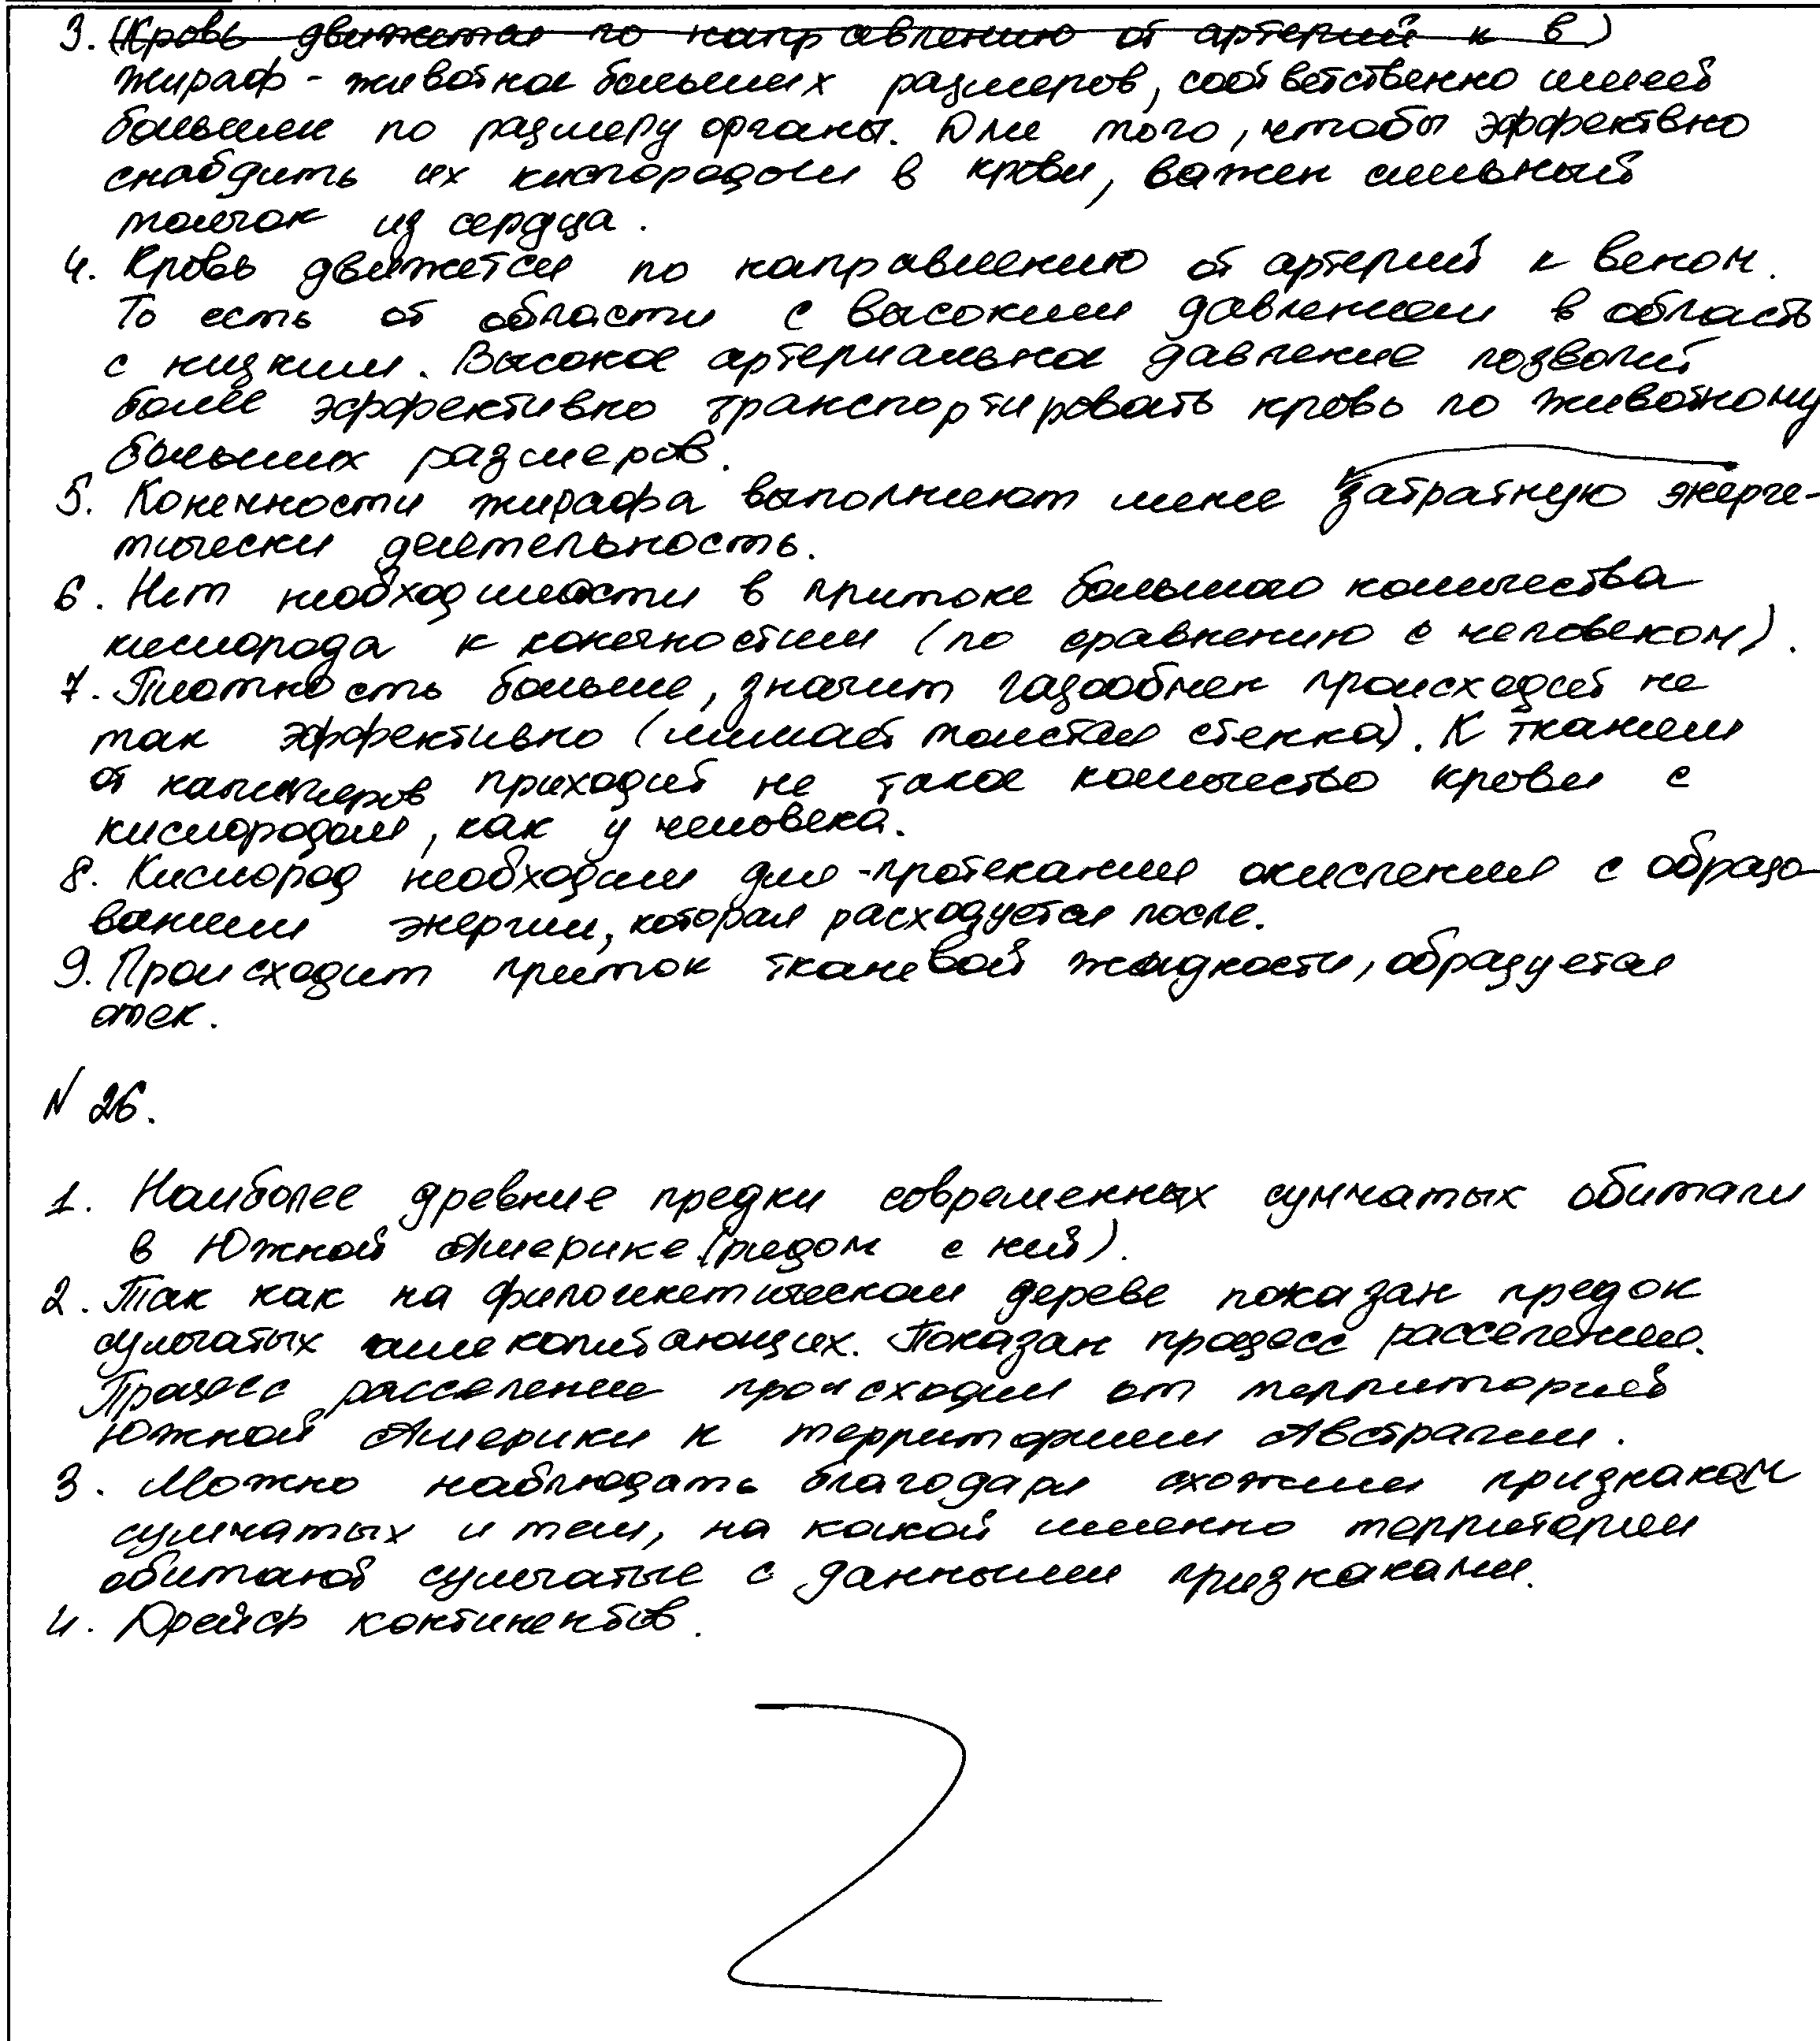 3. (Кровь движется по направлению от артерий к в)
Жираф - животное больших размеров, соответственно имеет
большие по размеру органы. Для того, чтобы эффективно
снабдить их кислородом в крови, важен сильный
толчок из сердца.
4. Кровь движется по направлению от артерий к венам.
То есть от области с высоким давлением в область
с низким. Высокое артериальное давление позволит
более эффективно транспортировать кровь по животному
больших размеров.
5. Конечности жирафа выполняют менее затратную энерге-
тически деятельность.
6. Нет необходимости в притоке большого количества
кислорода к конечностям (по сравнению с человеком).
7. Плотность больше, значит газообмен происходит не
так эффективно (мешает толстая стенка). К тканям
от капилляров приходит не такое количество крови с
кислородом, как у человека.
8. Кислород необходим для протекания окисления с образо-
ванием энергии, которая расходуется после.
9. Происходит приток тканевой жидкости, образуется
отек.
N 26.
1. Наиболее древние предки современных сумчатых обитали
в Южной Америке (рядом с ней).
2. Так как на филогенетическом дереве показан предок
сумчатых млекопитающих. Показан процесс расселения.
Процесс расселения происходил от территорией
Южной Америки к территориям Австралии.
3. Можно наблюдать благодаря схожим признакам
сумчатых и тем, на какой именно территории
обитают сумчатые с данными признаками.
4. Дрейф континентов.